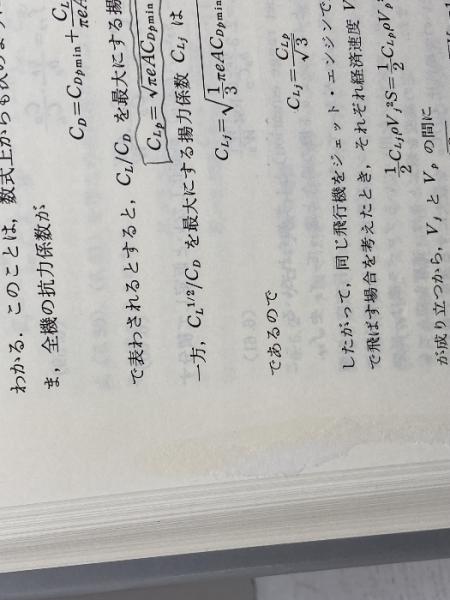 わかる．このことは，数式上からも次のよう
ま，全機の抗力係数が
C_D=C_{Dp min}+C_L/πeA
で表わされるとすると，C_L/C_D を最大にする揚
C_{Lp}=√πeAC_{Dp min}
一方，C_L^{1/2}/C_D を最大にする揚力係数 C_{Lj} は
C_{Lj}=√1/3 πeAC_{Dp min}
であるので
C_{Lj}=C_{Lp}/√3
したがって，同じ飛行機をジェット・エンジンで，
で飛ばす場合を考えたとき，それぞれ経済速度 V
1/2 C_{Lj}ρV_j²S=1/2 C_{Lp}ρV_p
が成り立つから，V_j と V_p の間に